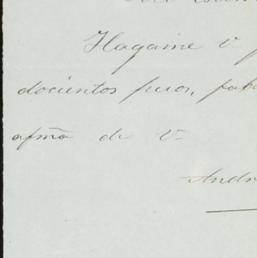 Hagame v
docientos pesos,
afmo de V.
Andr